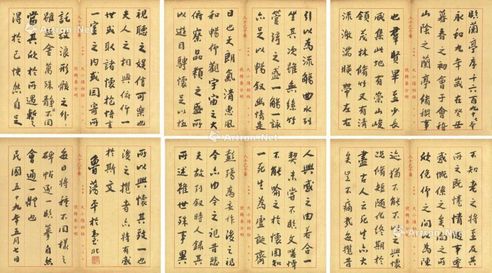 臨蘭亭序
永和九年歲在癸丑
暮春之初會于會稽
山陰之蘭亭修禊事
也羣賢畢至少長
咸集此地有崇山峻
領茂林脩竹又有清
流激湍暎帶左右
引以為流觴曲水列
坐其次雖無絲竹
管絃之盛一觴一詠
亦足以暢敘幽情是
日也天朗氣清惠風
和暢仰觀宇宙之大
俯察品類之盛所
以遊目騁懷足以極
視聽之娛信可樂也
夫人之相與俯仰一
世或取諸懷抱悟言
一室之內或因寄所
託放浪形骸之外
雖趣舍萬殊靜不同
當其欣於所遇蹔
得於己快然自足
不知老之將至及其
所之既惓情隨事遷
感慨係之矣向之所
欣俛仰之間以為陳
迹猶不能不以之興
懷況脩短隨化終期於
盡古人云死生亦大
矣豈不痛哉每攬昔
人興感之由若合一
契未嘗不臨文嗟悼
不能喻之於懷固知
一死生為虛誕齊
彭殤為妄作後之視
今亦由今之視昔悲
夫故列敘時人錄其
所述雖世殊事異
所以興懷其致一也
後之攬者亦將有感
於斯文
魯蕩平於臺北
每日將種不同樣之
碑帖臨摹自然
會通一體也
民國五十九年五月七日